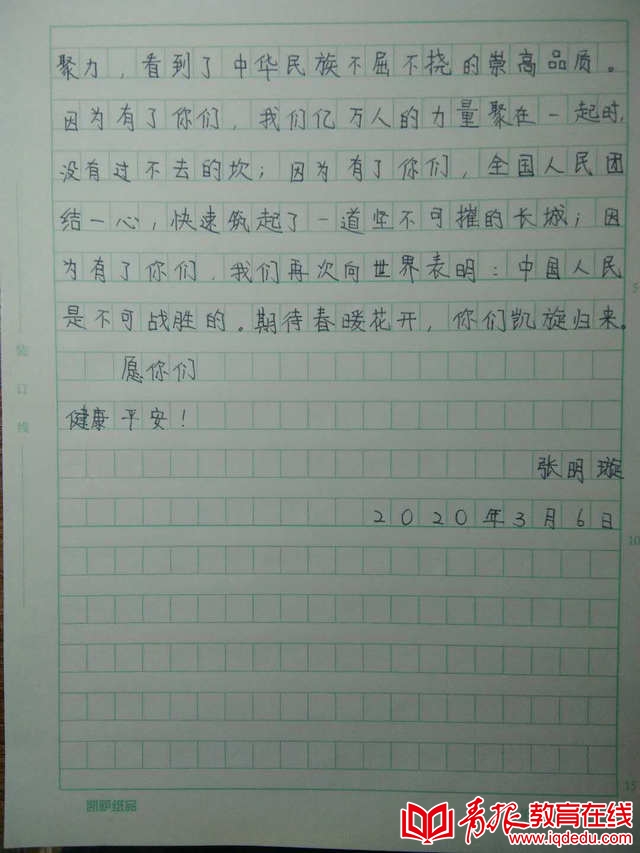 聚力，看到了中华民族不屈不挠的崇高品质。
因为有了你们，我们亿万人的力量聚在一起时，
没有过不去的坎；因为有了你们，全国人民团
结一心，快速筑起了一道坚不可摧的长城；因
为有了你们，我们再次向世界表明：中国人民
是不可战胜的。期待春暖花开，你们凯旋归来。
愿你们
健康平安！
张明璇
2020年3月6日
装订线
5
10
15
青报教育在线
www.iqdedu.com